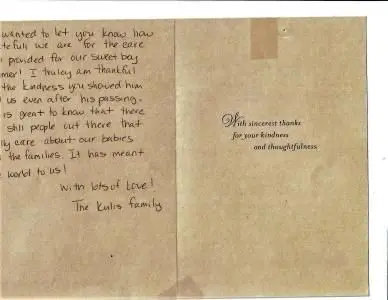 wanted to let you know how
teful we are for the care
provided for our sweet boy
mer! I truley am thankful
the kindness you showed him
us even after his passing.
is great to know that there
still people out there that
lly care about our babies
the families. It has meant
world to us!
With lots of Love!
The Kulis family
With sincerest thanks
for your kindness
and thoughtfulness